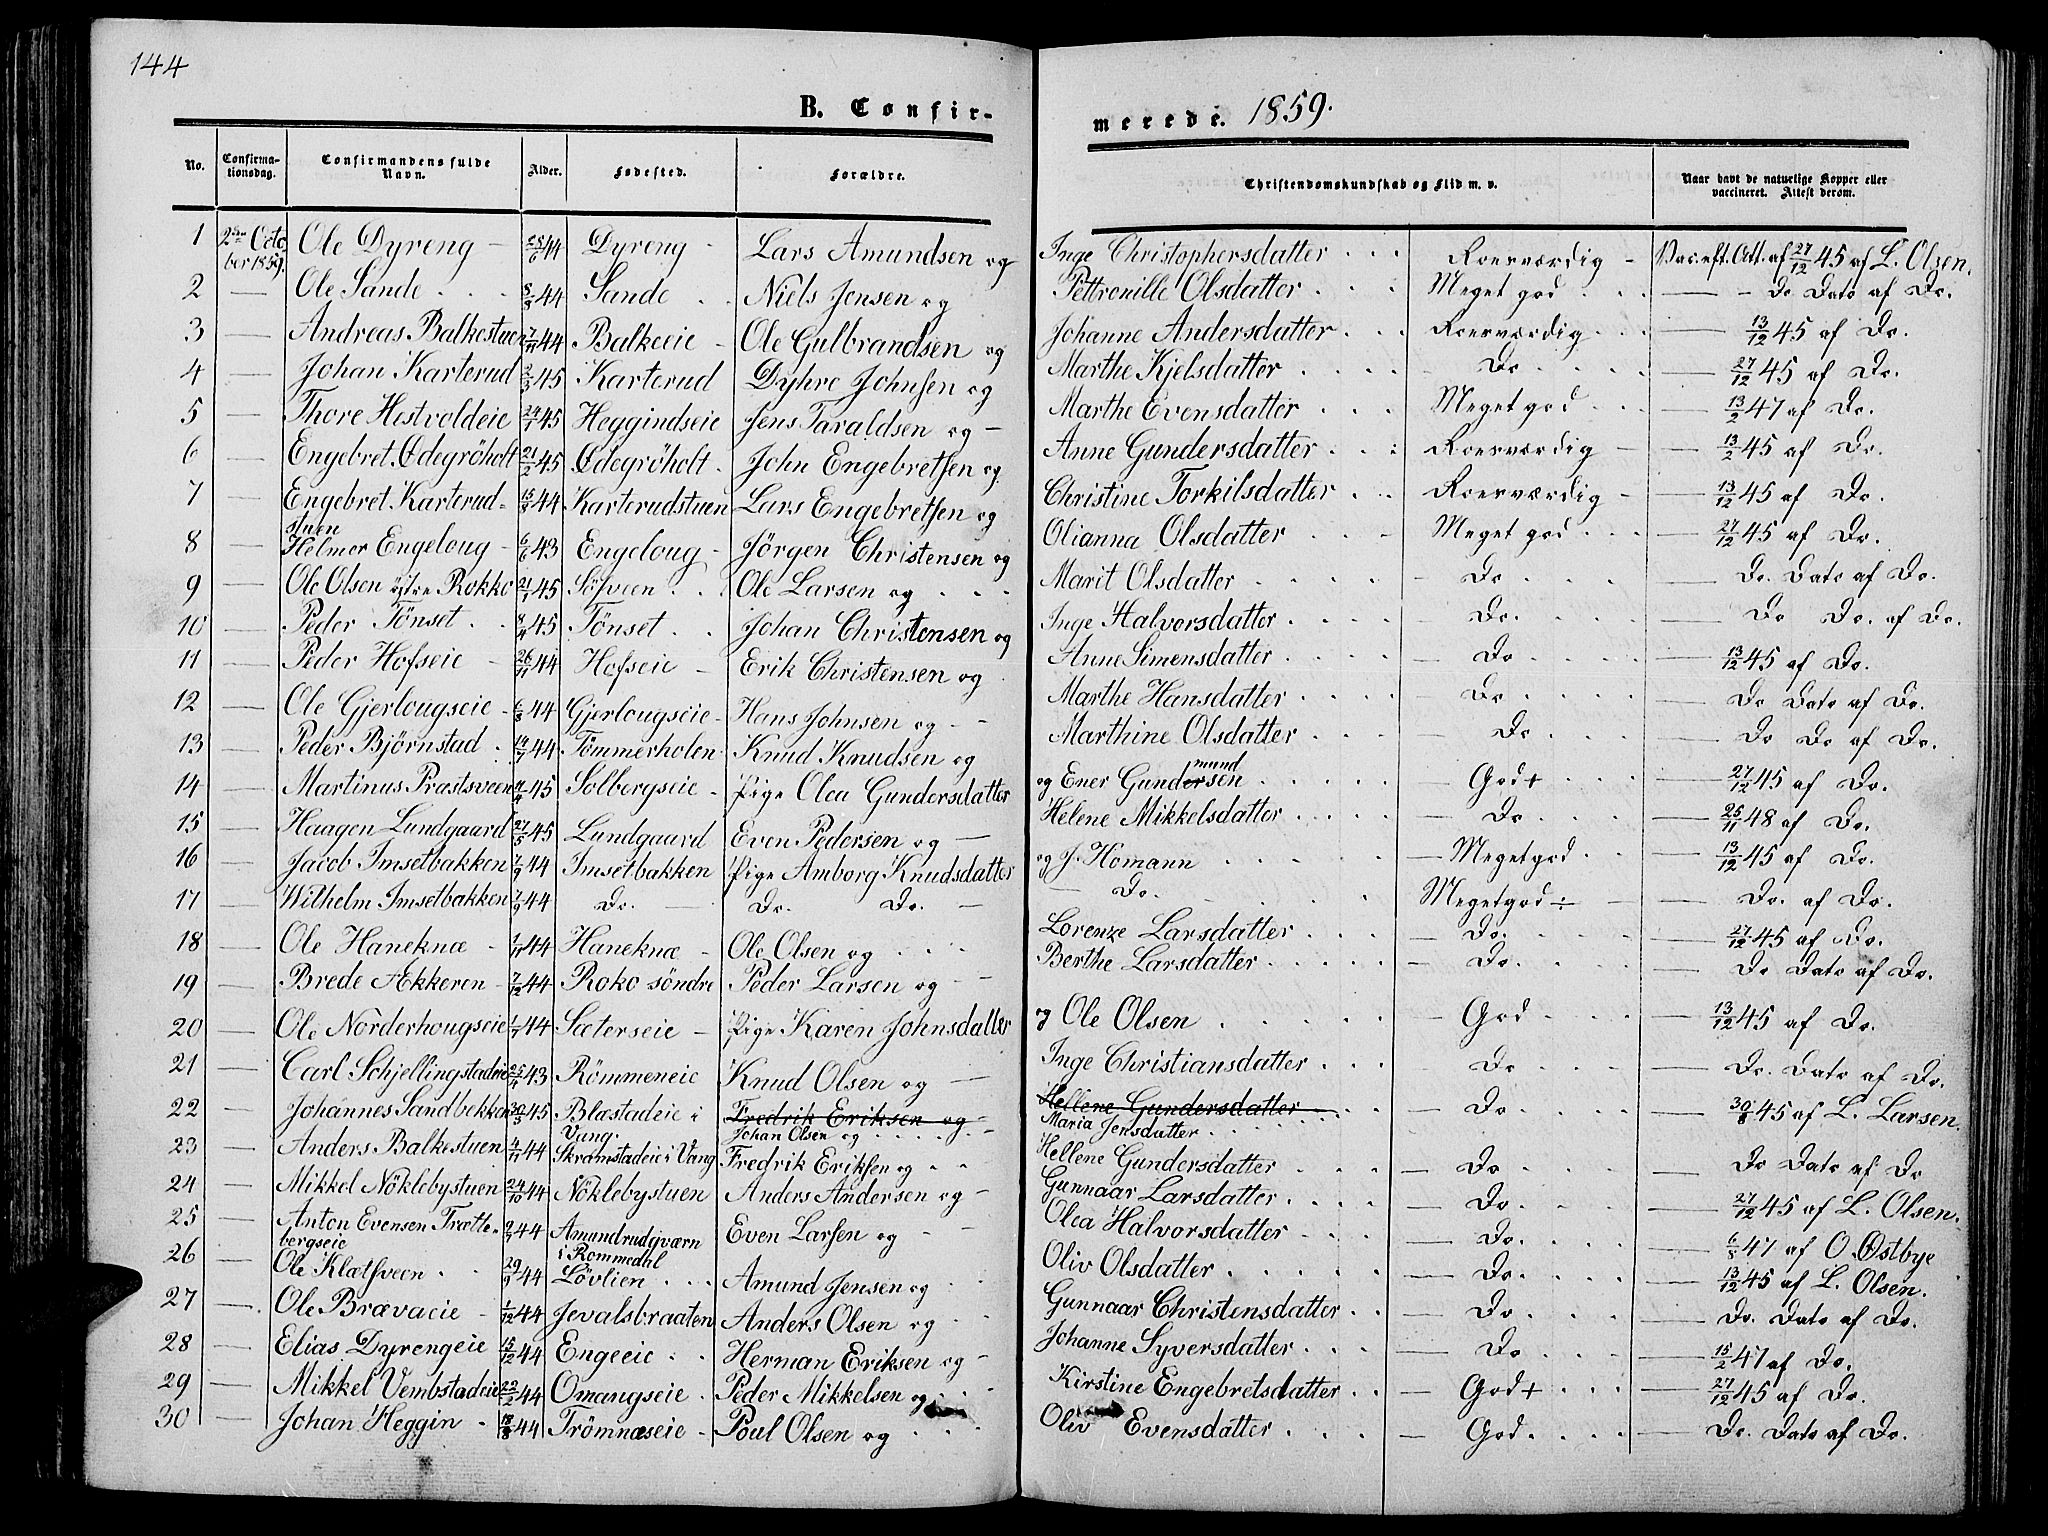 144
B. Confir-
merede. 1859.
No. Confirma-tionsdag. Confirmandens fulde Navn. Alder. Fødested. Forældre. Christendomskundskab og Flid m. v. Naar havt de naturlige Kopper eller vaccineret. Attest derom.
1 2den October 1859. Ole Dyreng 28/6 44 Dyreng Lars Amundsen og Inge Christophersdatter Roesværdig Vac. eft. Att. af 27/12 45 af L. Olsen.
2 — Ole Sande 8/8 44 Sande Niels Jensen og Pettronille Olsdatter Meget god — Do Dato af Do.
3 — Andreas Balkestuen 7/11 44 Balkeeie Ole Gulbrandsen og Johanne Andersdatter Roesværdig — 13/12 45 af Do.
4 — Johan Karterud 2/3 45 Karterud Dyhre Johnsen og Marthe Kjelsdatter Do — 27/12 45 af Do.
5 — Thore Hestvoldeie 24/1 45 Heggindseie Jens Taraldsen og Marthe Evensdatter Meget god — 13/2 47 af Do.
6 — Engebret Ødegröholt 21/2 45 Ødegröholt John Engebretsen og Anne Gundersdatter Roesværdig — 13/2 45 af Do.
7 — Engebret Karterudstuen 15/3 44 Karterudstuen Lars Engebretsen og Christine Torkilsdatter Roesværdig — 13/12 45 af Do.
8 — Helmer Engeloug 6/6 43 Engeloug Jörgen Christensen og Olianna Olsdatter Meget god — 27/12 45 af Do.
9 — Ole Olsen östre Rokko 21/1 45 Söfveen Ole Larsen og Marit Olsdatter Do — Do. Dato af Do.
10 — Peder Tönset 8/4 45 Tönset Johan Christensen og Inge Halvorsdatter Do. — Do Do. af Do.
11 — Peder Hofseie 26/11 44 Hofseie Erik Christensen og Anne Simensdatter Do — 13/12 45 af Do.
12 — Ole Gjerlougseie 6/8 44 Gjerlougseie Hans Johnsen og Marthe Hansdatter Do — Do Dato af Do.
13 — Peder Bjørnstad 14/7 44 Tömmerholen Knud Knudsen og Marthine Olsdatter Do — Do Do af Do.
14 — Martinus Prastsveen 45 Solbergseie Pige Olea Gundersdatter og Ener Gundersen mund God+ — 27/12 45 af Do.
15 — Haagen Lundgaard 27/5 45 Lundgaard Even Pedersen og Helene Mikkelsdatter Do — 25/11 48 af Do.
16 — Jacob Imsetbakken 7/9 44 Imsetbakken Pige Amborg Knudsdatter og J. Homann Meget god — 13/12 45 af Do.
17 — Wilhelm Imsetbakken 7/9 44 Do. Do. Do. — Do. Meget god ÷ — Do. af Do.
18 — Ole Haneknæ 1/11 44 Haneknæ Ole Olsen og Lorenze Larsdatter Do. — 27/12 45 af Do.
19 — Brede Ækkeren 7/12 44 Roko söndre Peder Larsen og Berthe Larsdatter Do. — Do Dato af Do.
20 — Ole Norderhougseie 44 Sæterseie Pige Karen Johnsdatter og Ole Olsen God — 13/12 45 af Do.
21 — Carl Schjellingstadeie 25/4 43 Römmeneie Knud Olsen og Inge Christiansdatter Do — Do. Dato af Do.
22 — Johannes Sandbekken 30/3 45 Blæstadeie i Vang. Fredrik Eriksen og Johan Olsen og Hellene Gundersdatter Maria Jensdatter Do — 30/8 45 af L. Larsen.
23 — Anders Balkestuen 4/11 44 Skramstadeie i Vang Fredrik Eriksen og Hellene Gundersdatter Do — Do Dato af Do
24 — Mikkel Nöklebystuen 24/10 44 Nöklebystuen Anders Andersen og Gunnaar Larsdatter Do. — 27/12 45 af L. Olsen.
25 — Anton Evensen Trættebergseie 44 Amundrudqværn i Rommedahl Even Larsen og Olea Halvorsdatter Do. — 6/8 47 af O. Østbye
26 — Ole Klætsveen 29/9 44 Lövlien Amund Jensen og Oliv Olsdatter Do. — 13/12 45 af L. Olsen.
27 — Ole Brævacie 1/12 44 Jevalsbraaten Anders Olsen og Gunnaar Christensdatter Do — Do. Dato af Do.
28 — Elias Dyrengeie 15/12 44 Engeeie Herman Eriksen og Johanne Syversdatter Do — 15/2 47 af Do.
29 — Mikkel Vembstadeie 22/2 44 Omangseie Peder Mikkelsen og Kirstine Engebretsdatter God+ — 27/12 45 af Do.
30 — Johan Heggin 18/8 44 Trömnæseie Poul Olsen og Oliv Evensdatter God — Do. Dato af Do.